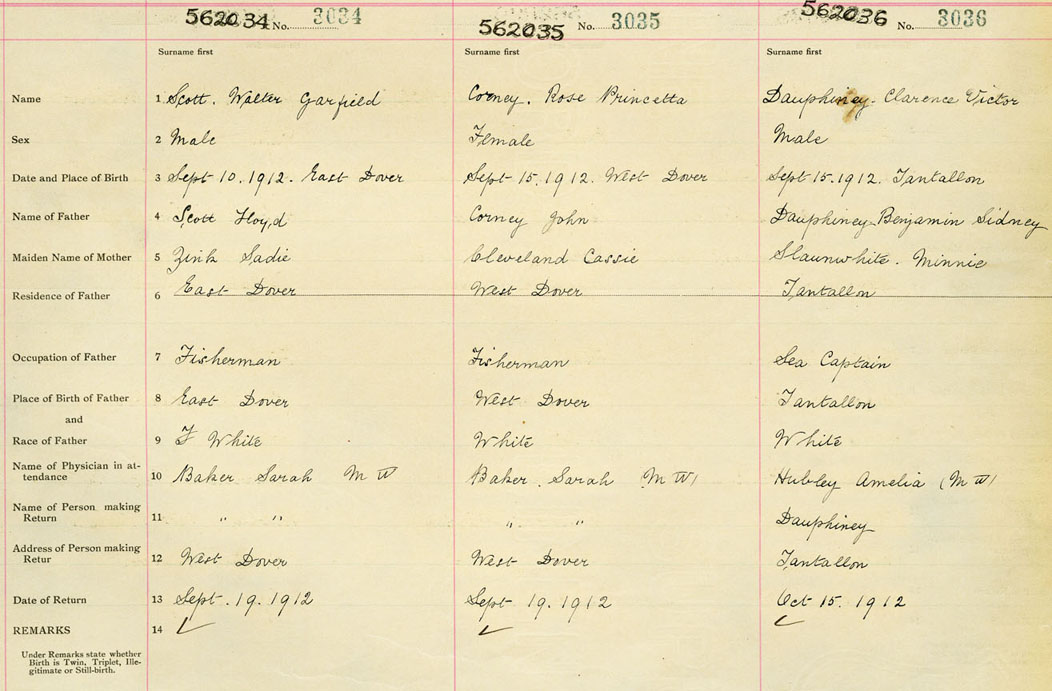 562034 No. 3034 562035 No. 3035 562036 No. 3036
Surname first Surname first Surname first
Name 1 Scott. Walter Garfield Corney. Rose Princetta Dauphiney. Clarence Victor
Sex 2 Male Female Male
Date and Place of Birth 3 Sept 10. 1912. East Dover Sept 15. 1912. West Dover Sept 15. 1912. Tantallon
Name of Father 4 Scott Floyd Corney John Dauphiney Benjamin Sidney
Maiden Name of Mother 5 Zink Sadie Cleveland Cassie Slaunwhite. Minnie
Residence of Father 6 East Dover West Dover Tantallon
Occupation of Father 7 Fisherman Fisherman Sea Captain
Place of Birth of Father 8 East Dover West Dover Tantallon
and
Race of Father 9 White White White
Name of Physician in at-
tendance 10 Baker Sarah M W Baker. Sarah (M W) Hubley Amelia (M W)
Name of Person making
Return 11 " " " " Dauphiney
Address of Person making
Retur 12 West Dover West Dover Tantallon
Date of Return 13 Sept. 19. 1912 Sept 19. 1912 Oct 15. 1912
REMARKS 14 ✓ ✓ ✓
Under Remarks state whether
Birth is Twin, Triplet, Ille-
gitimate or Still-birth.